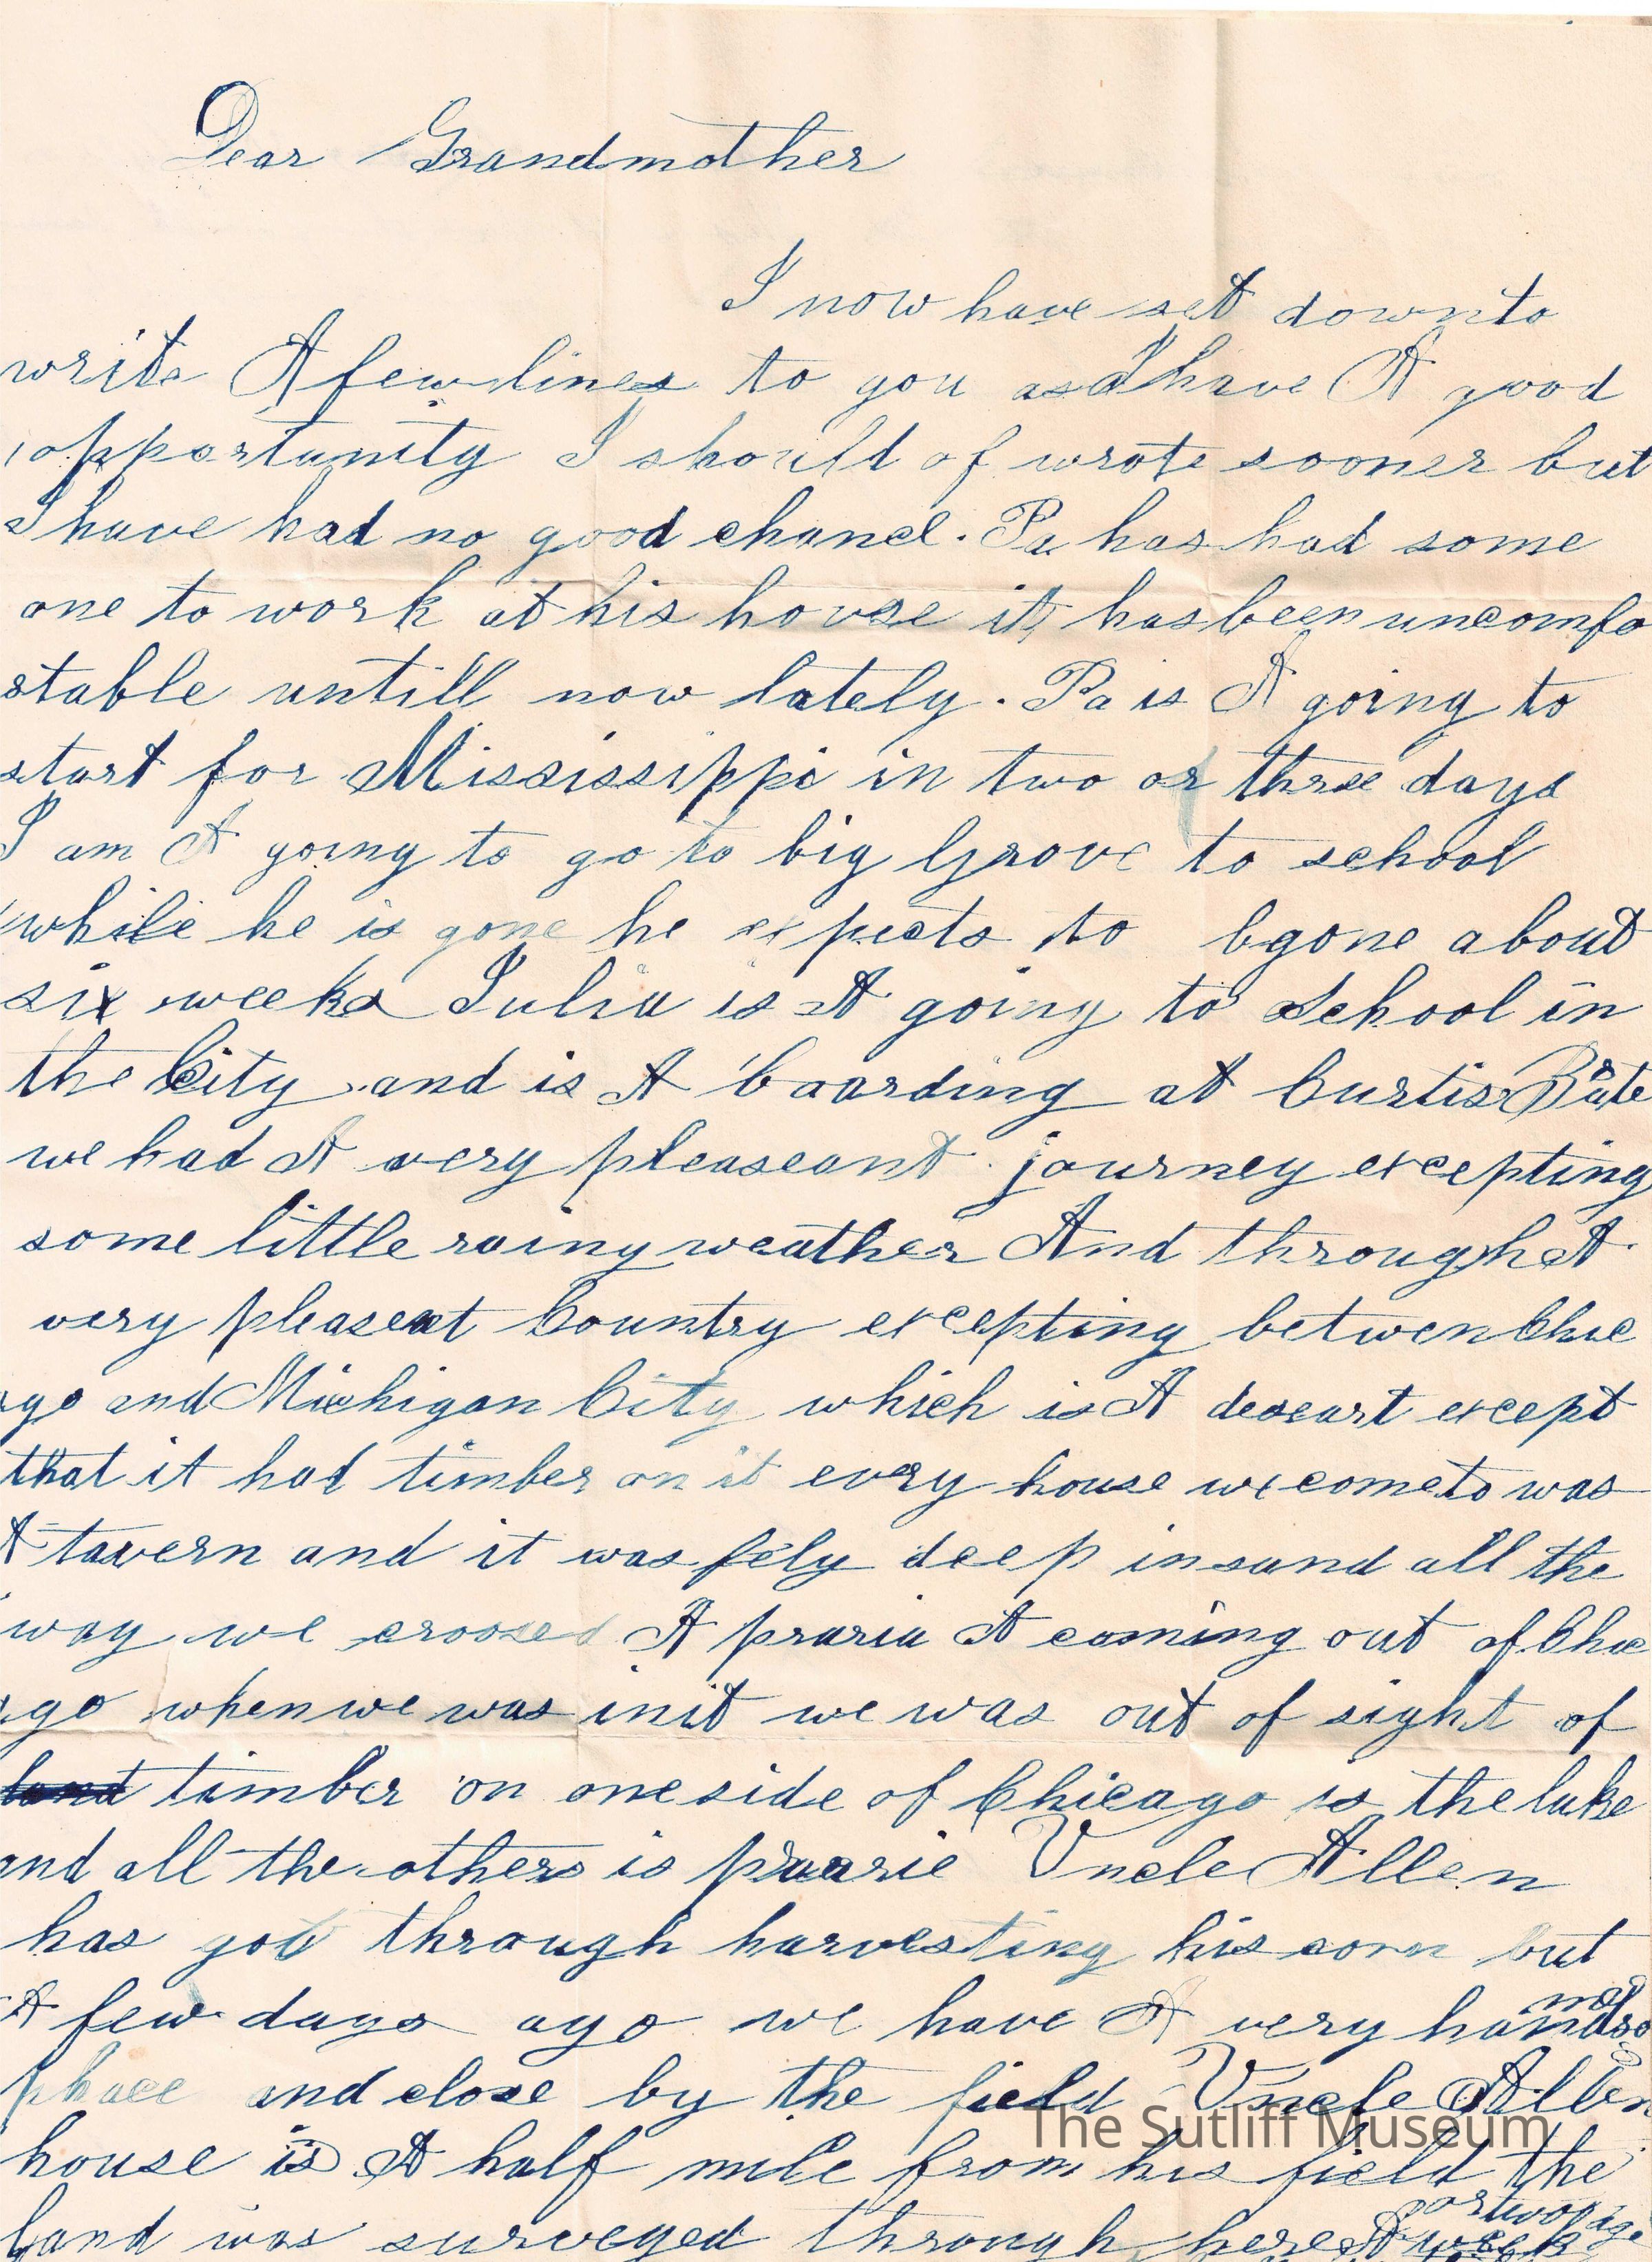 Dear Grandmother
I now have set down to
write A few lines to you as I have A good
opportunity I should of wrote sooner but
I have had no good chance. Pa has had some
one to work at his house it has been uncomfo
rtable untill now lately. Pa is A going to
start for Mississippi in two or three days
I am A going to go to big Grove to school
while he is gone he expects to b gone about
six weeks Julia is A going to School in
the City and is A boarding at Curtis
we had A very pleaseant journey excepting
some little rainy weather And through A
very pleasent Country excepting betwen Chic
ago and Michigan City which is A deseart except
that it had timber on it evry house we come to was
A tavern and it was deep in sand all the
way we croosed A praria A coming out of Chic
ago when we was in it we was out of sight of
land timber on one side of Chicago is the lake
and all the others is prarie Uncle Allen
has got through harvesting his corn but
A few days ago we have A very handsome
place and close by the field Uncle Allen
house is A half mile from his field the
land was surveyed through here A week or two ago
The Sutliff Museum